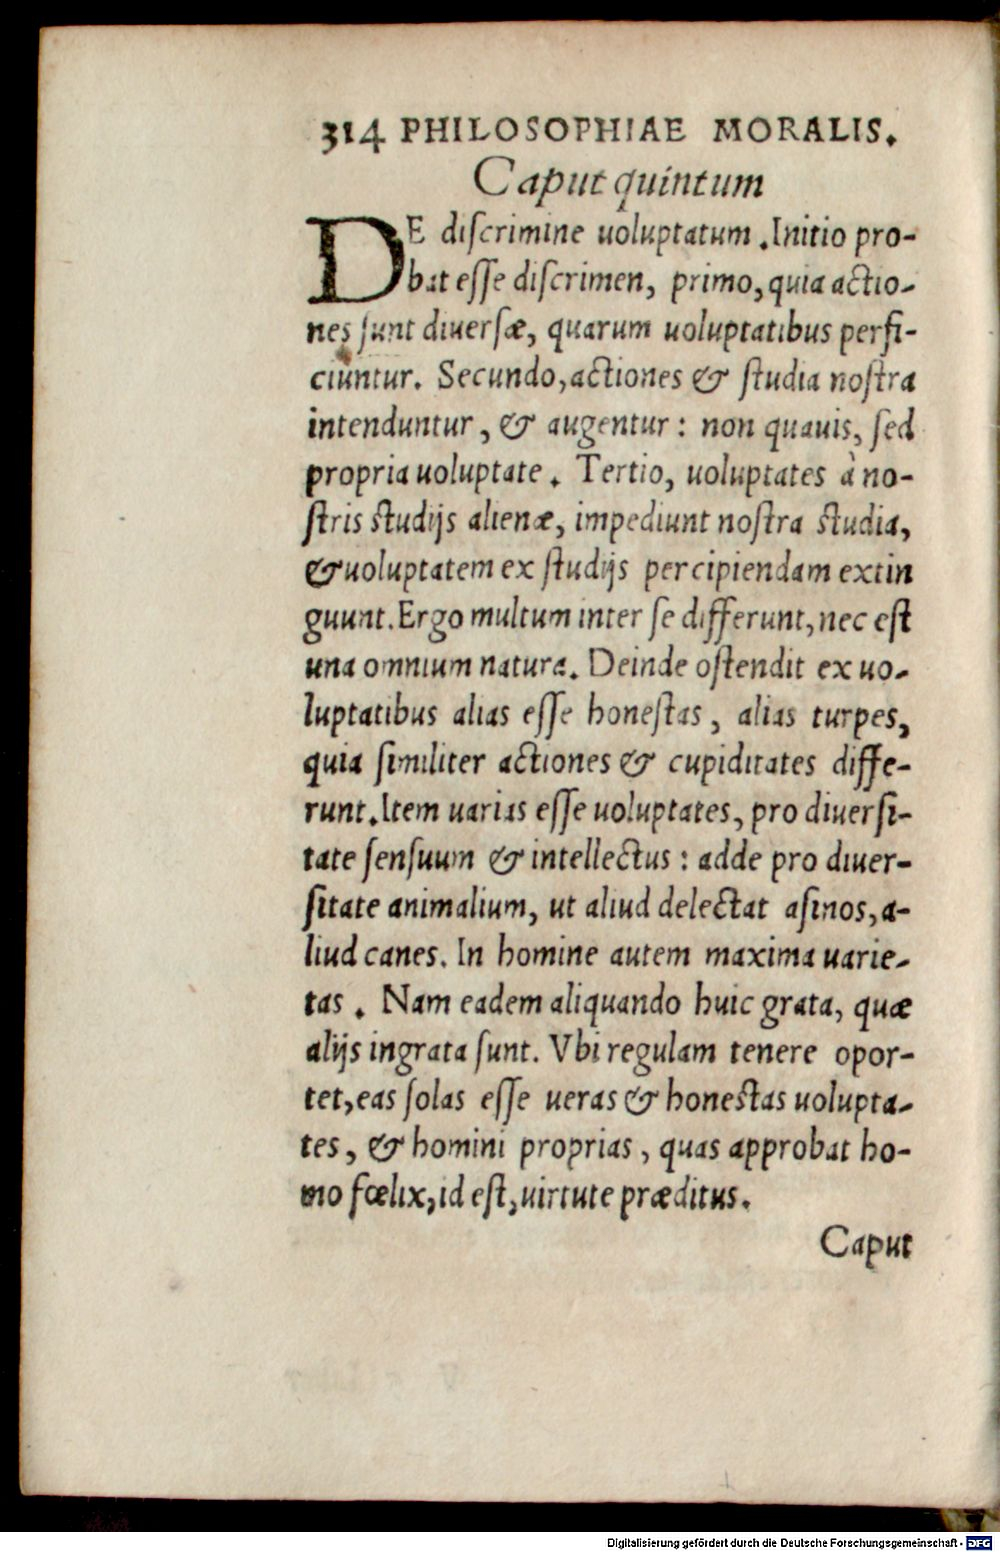 314 PHILOSOPHIAE MORALIS.
Caput quintum
DE diſcrimine uoluptatum. Initio pro-
bat eſſe diſcrimen, primo, quia actio-
nes ſunt diuerſæ, quarum uoluptatibus perfi-
ciuntur. Secundo, actiones & ſtudia noſtra
intenduntur, & augentur: non quauis, ſed
propria uoluptate. Tertio, uoluptates à no-
ſtris ſtudijs alienæ, impediunt noſtra ſtudia,
& uoluptatem ex ſtudijs percipiendam extin
guunt. Ergo multum inter ſe differunt, nec eſt
una omnium natura. Deinde oſtendit ex uo-
luptatibus alias eſſe honeſtas, alias turpes,
quia ſimiliter actiones & cupiditates diffe-
runt. Item uarias eſſe uoluptates, pro diuerſi-
tate ſenſuum & intellectus: adde pro diuer-
ſitate animalium, ut aliud delectat aſinos, a-
liud canes. In homine autem maxima uarie-
tas. Nam eadem aliquando huic grata, quæ
alijs ingrata ſunt. Vbi regulam tenere opor-
tet, eas ſolas eſſe ueras & honeſtas uolupta-
tes, & homini proprias, quas approbat ho-
mo fœlix, id eſt, uirtute præditus.
Caput
Digitalisierung gefördert durch die Deutsche Forschungsgemeinschaft - DFG